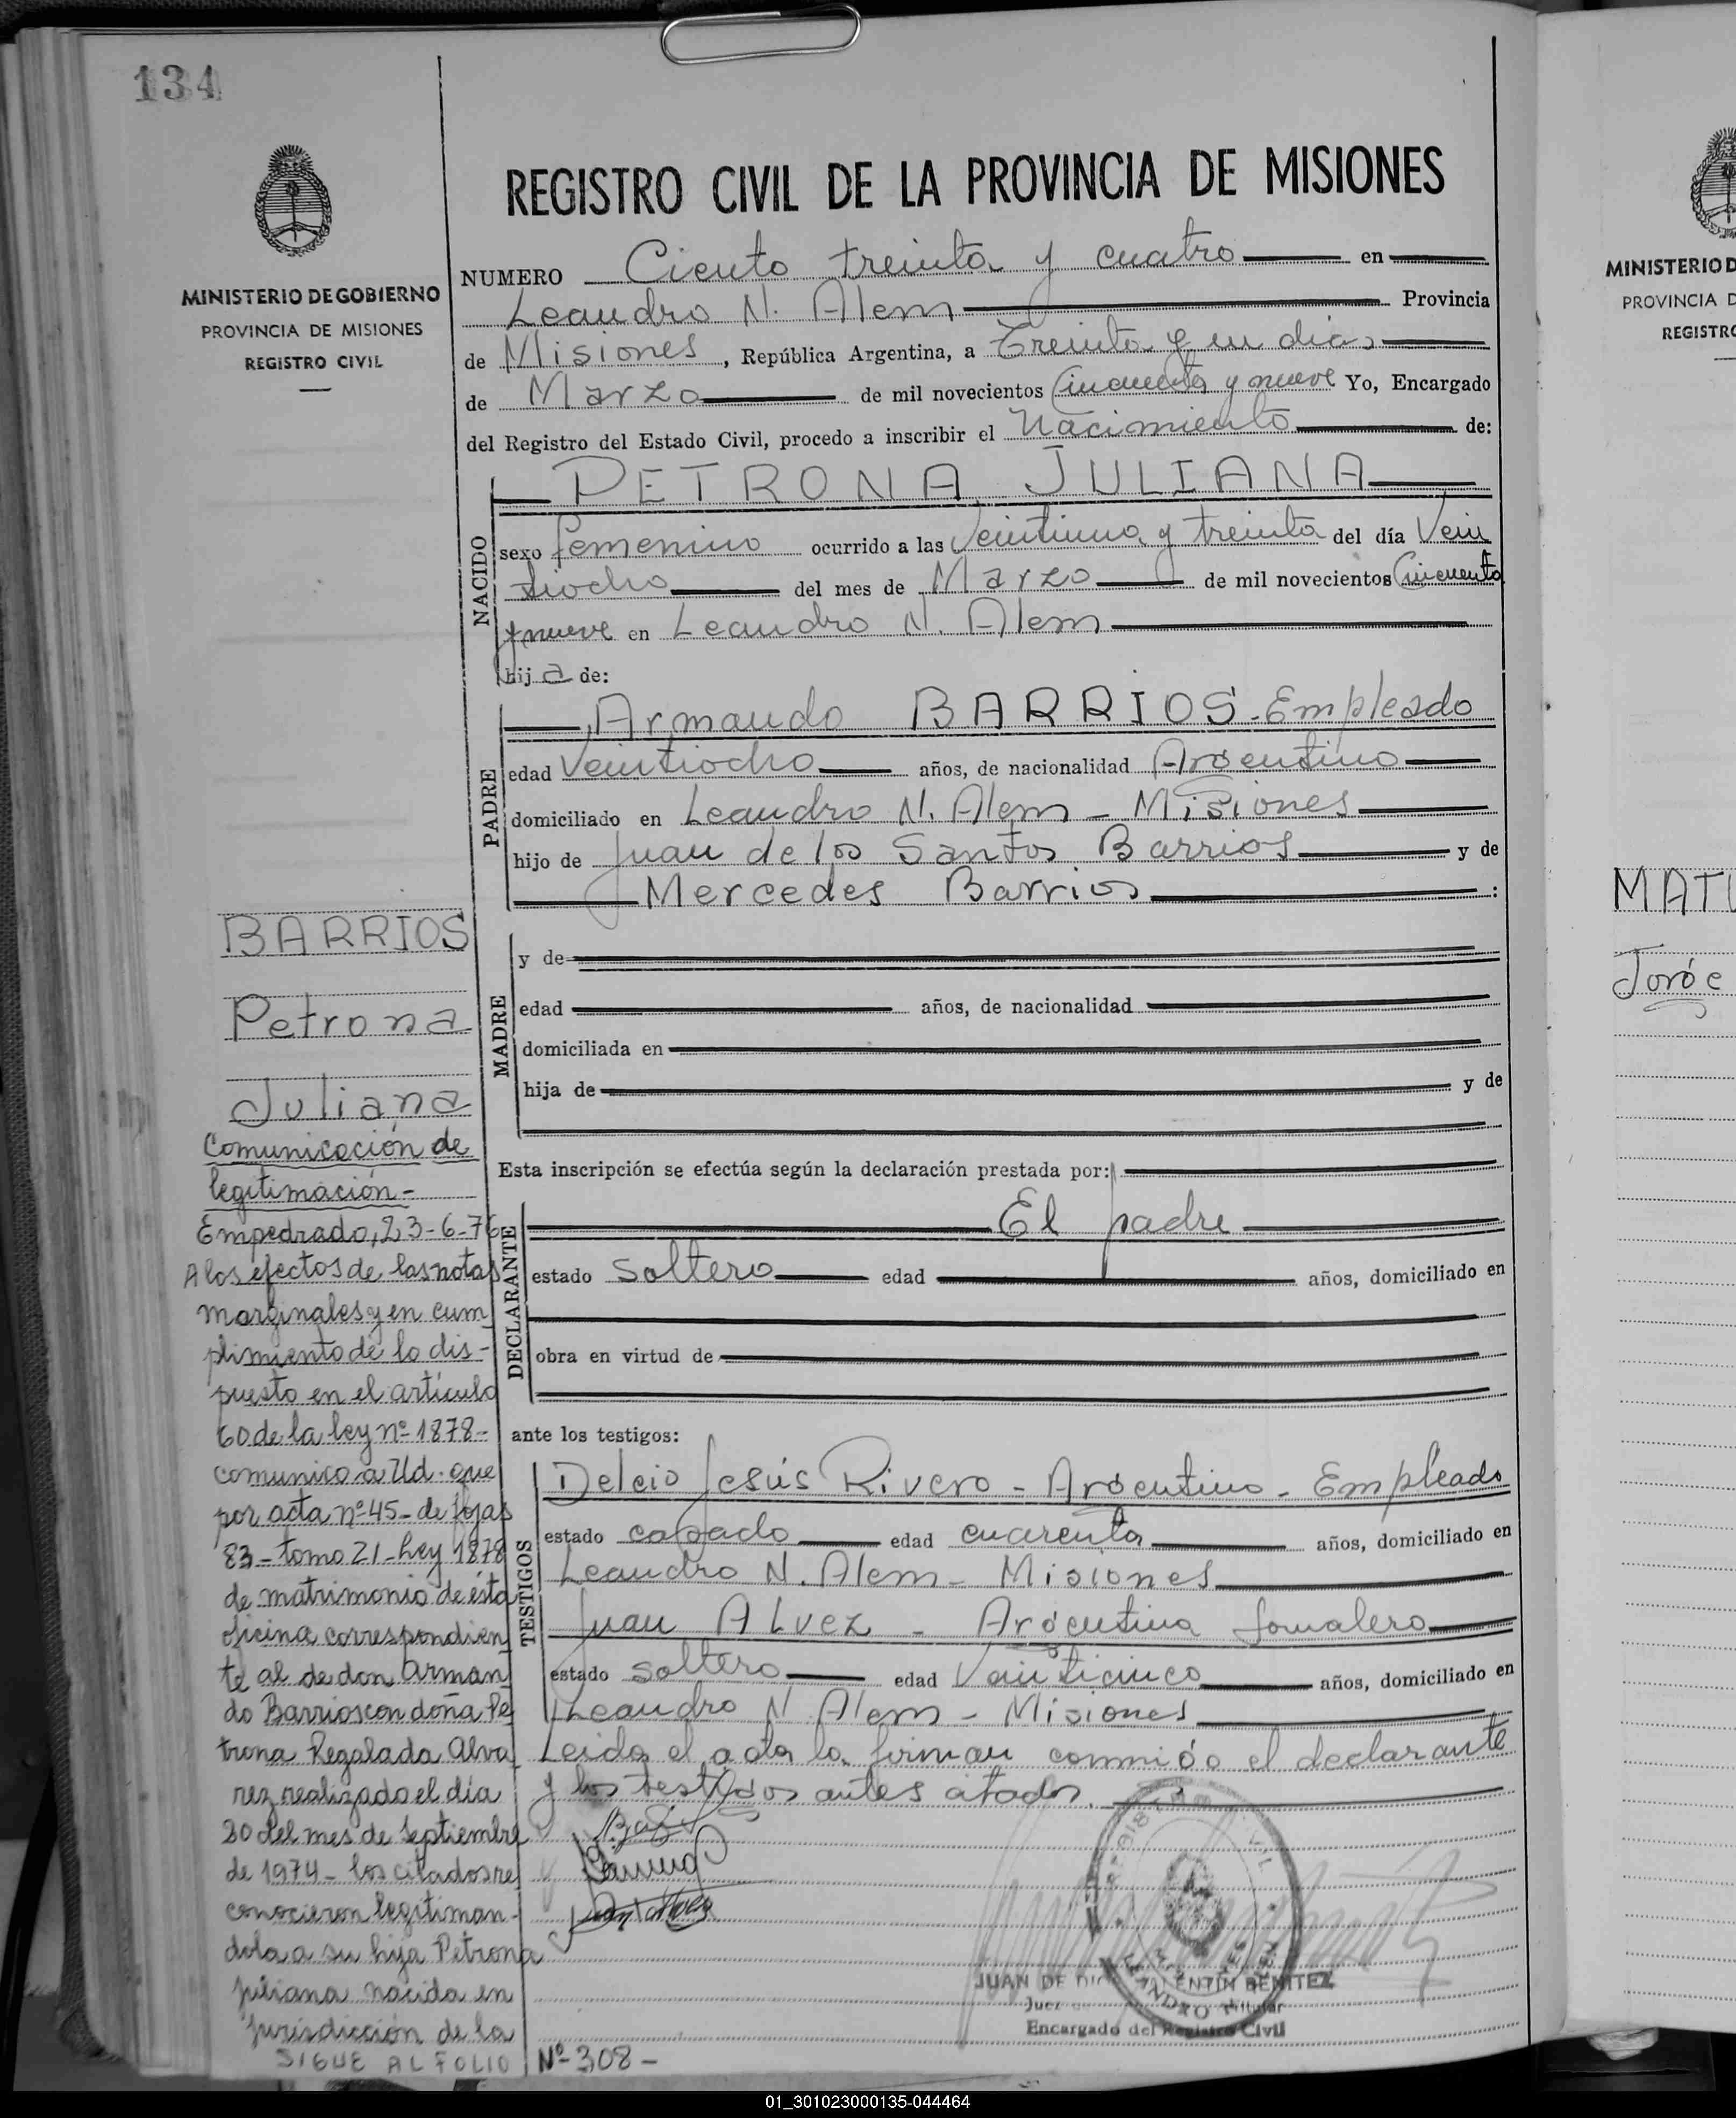 134
MINISTERIO DE GOBIERNO
PROVINCIA DE MISIONES
REGISTRO CIVIL
REGISTRO CIVIL DE LA PROVINCIA DE MISIONES
NUMERO Ciento treinta y cuatro en
Leandro N. Alem Provincia
de Misiones, República Argentina, a Treinta y un dias
de Marzo de mil novecientos Cincuenta y nueve Yo, Encargado
del Registro del Estado Civil, procedo a inscribir el Nacimiento de:
NACIDO
PETRONA JULIANA
sexo femenino ocurrido a las Veintiuna y treinta del día Vein
tiocho del mes de Marzo de mil novecientos Cincuenta
y nueve en Leandro N. Alem
hija de:
PADRE
Armando BARRIOS - Empleado
edad Veintiocho años, de nacionalidad Argentino
domiciliado en Leandro N. Alem - Misiones
hijo de Juan de los Santos Barrios y de
Mercedes Barrios :
MADRE
y de
edad años, de nacionalidad
domiciliada en
hija de y de
Esta inscripción se efectúa según la declaración prestada por:
DECLARANTE
El padre
estado soltero edad años, domiciliado en
obra en virtud de
ante los testigos:
TESTIGOS
Delcio Jesús Rivero - Argentino - Empleado
estado casado edad cuarenta años, domiciliado en
Leandro N. Alem - Misiones
Juan ALvez - Argentino Jornalero
estado soltero edad Veinticinco años, domiciliado en
Leandro N. Alem - Misiones
Leida el acta la firman conmigo el declarante
y los testigos antes citados.
JUAN DE DIOS VALENTIN BENITEZ
Juez Titular
Encargado del Registro Civil
BARRIOS
Petrona
Juliana
Comunicación de
legitimación -
Empedrado, 23-6-76
A los efectos de las notas
marginales y en cum
plimiento de lo dis-
puesto en el artículo
60 de la ley nº 1878-
comunico a Ud. que
por acta nº 45 - de fojas
83 - tomo 21 - Ley 1878
de matrimonio de ésta
oficina correspondien
te al de don Arman
do Barrios con doña Pe
trona Regalada Alva
rez realizado el día
20 del mes de Septiembre
de 1974 - los citados re
conocieron legitiman-
dola a su hija Petrona
Juliana nacida en
Jurisdicción de la
SIGUE AL FOLIO Nº 308 -
MINISTERIO D
PROVINCIA D
REGISTRO
MATU
Jorge
01_301023000135-044464